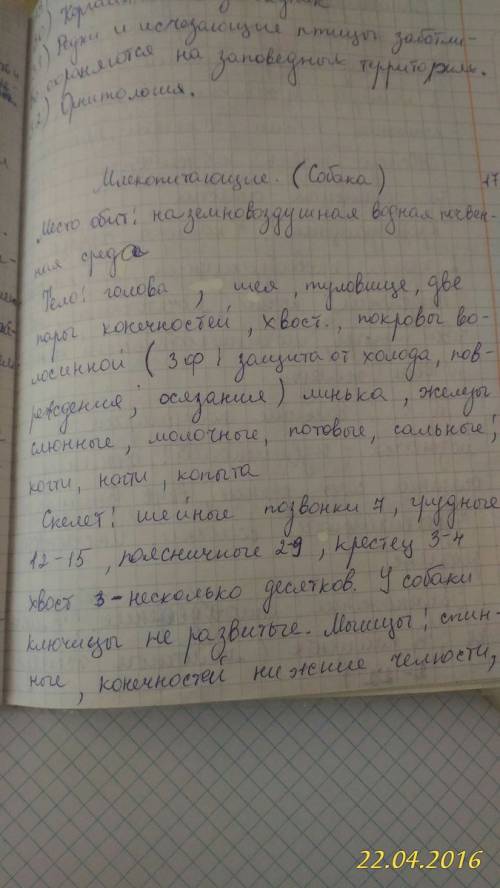 11) Редки и исчезающие птицы заботли-
во охраняются на заповедных территориях.
12) Орнитология.
Млекопитающие. (Собака)
17
Место обит: наземновоздушная водная почвен-
ния среда
Тело: голова, шея, туловище, две
пары конечностей, хвост., покровы во-
лосинной (3ф: защита от холода, пов-
реждения; осязания) линька, железы
слюнные, молочные, потовые, сальные;
когти, ногти, копыта
Скелет: шейные позвонки 7, грудные
12-15, поясничные 2-9, крестец 3-4
хвост 3-несколько десятков. У собаки
ключицы не развитые. Мышцы: спин-
ные, конечностей нижние челюсти,
22.04.2016